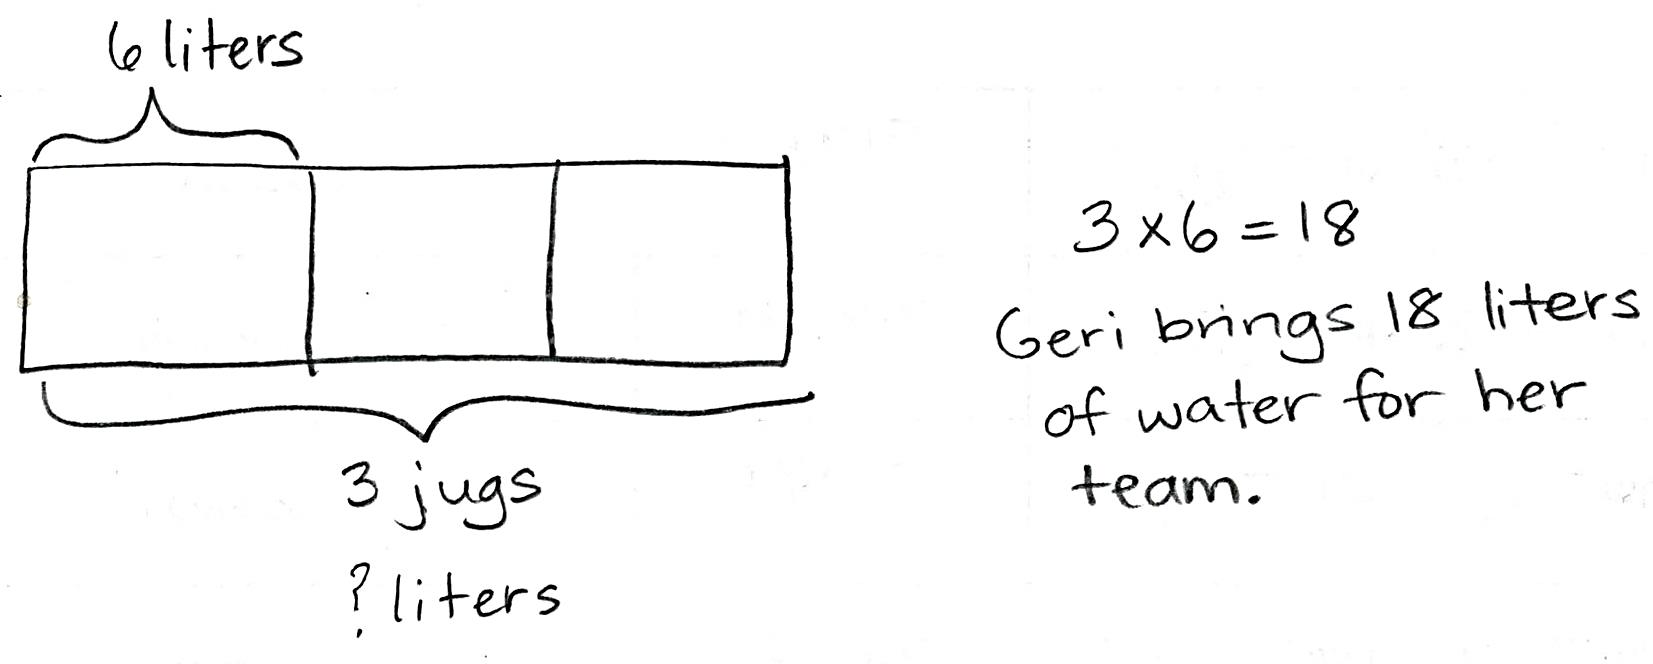 6 liters
3 jugs
? liters
3 × 6 = 18
Geri brings 18 liters
of water for her
team.